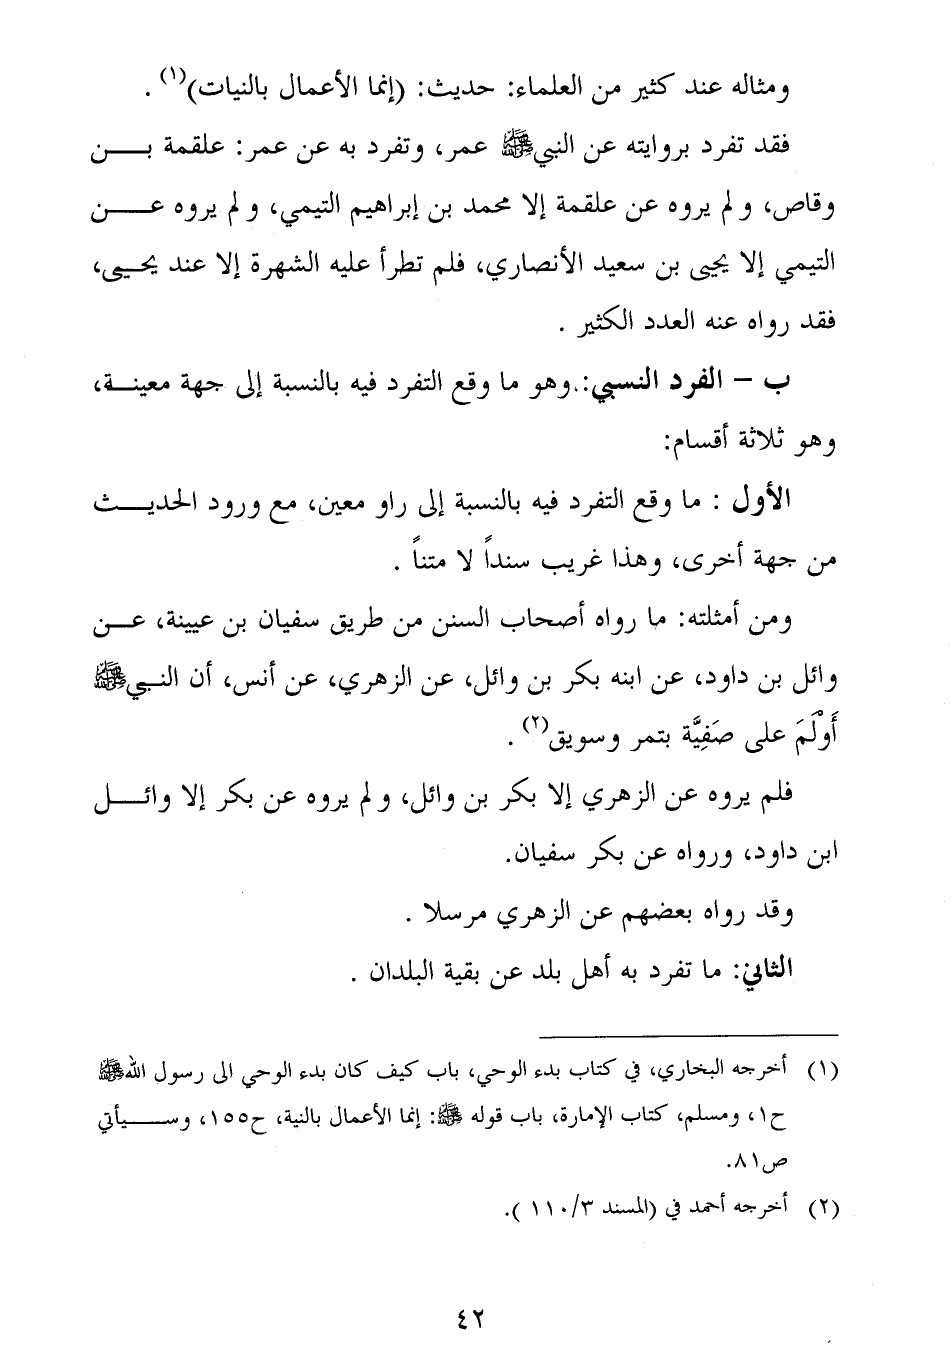 ومثاله عند كثير من العلماء: حديث: (إنما الأعمال بالنيات)(١) .
فقد تفرد بروايته عن النبي ﷺ عمر، وتفرد به عن عمر: علقمة بـــن
وقاص، ولم يروه عن علقمة إلا محمد بن إبراهيم التيمي، ولم يروه عـــن
التيمي إلا يحيى بن سعيد الأنصاري، فلم تطرأ عليه الشهرة إلا عند يحـيى،
فقد رواه عنه العدد الكثير .
ب – الفرد النسبي: وهو ما وقع التفرد فيه بالنسبة إلى جهة معينـة،
وهو ثلاثة أقسام:
الأول : ما وقع التفرد فيه بالنسبة إلى راو معين، مع ورود الحديـــث
من جهة أخرى، وهذا غريب سنداً لا متناً .
ومن أمثلته: ما رواه أصحاب السنن من طريق سفيان بن عيينة، عـــن
وائل بن داود، عن ابنه بكر بن وائل، عن الزهري، عن أنس، أن النـبي ﷺ
أَوْلَمَ على صَفِيَّة بتمر وسويق(٢) .
فلم يروه عن الزهري إلا بكر بن وائل، ولم يروه عن بكر إلا وائـــل
ابن داود، ورواه عن بكر سفيان.
وقد رواه بعضهم عن الزهري مرسلا .
الثاني: ما تفرد به أهل بلد عن بقية البلدان .
(١) أخرجه البخاري، في كتاب بدء الوحي، باب كيف كان بدء الوحي الى رسول الله ﷺ
ح١، ومسلم، كتاب الإمارة، باب قوله ﷺ: إنما الأعمال بالنية، ح١٥٥، وســـيأتي
ص٨١.
(٢) أخرجه أحمد في (المسند ١١٠/٣ ).
٤٢